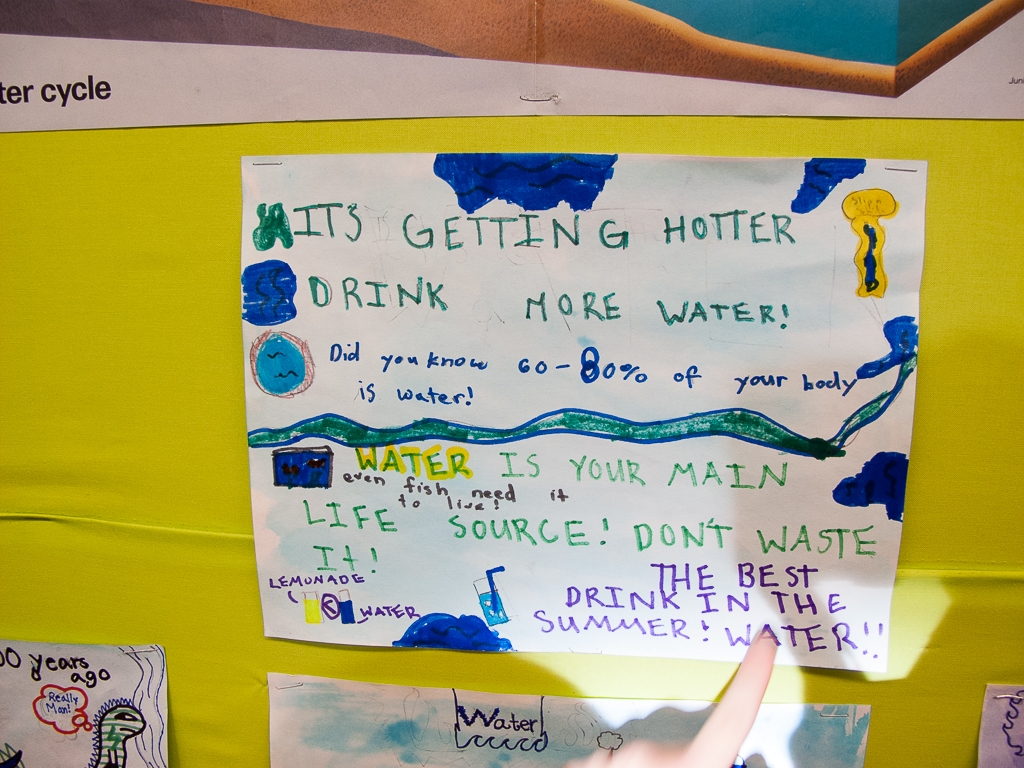 ter cycle
ITS GETTING HOTTER
DRINK MORE WATER!
Did you know 60-80% of your body
is water!
WATER IS YOUR MAIN
even fish need it
to live!
LIFE SOURCE! DON'T WASTE
It!
LEMONADE
< WATER
THE BEST
DRINK IN THE
SUMMER! WATER!!
00 years
ago
Really
Man!
Water